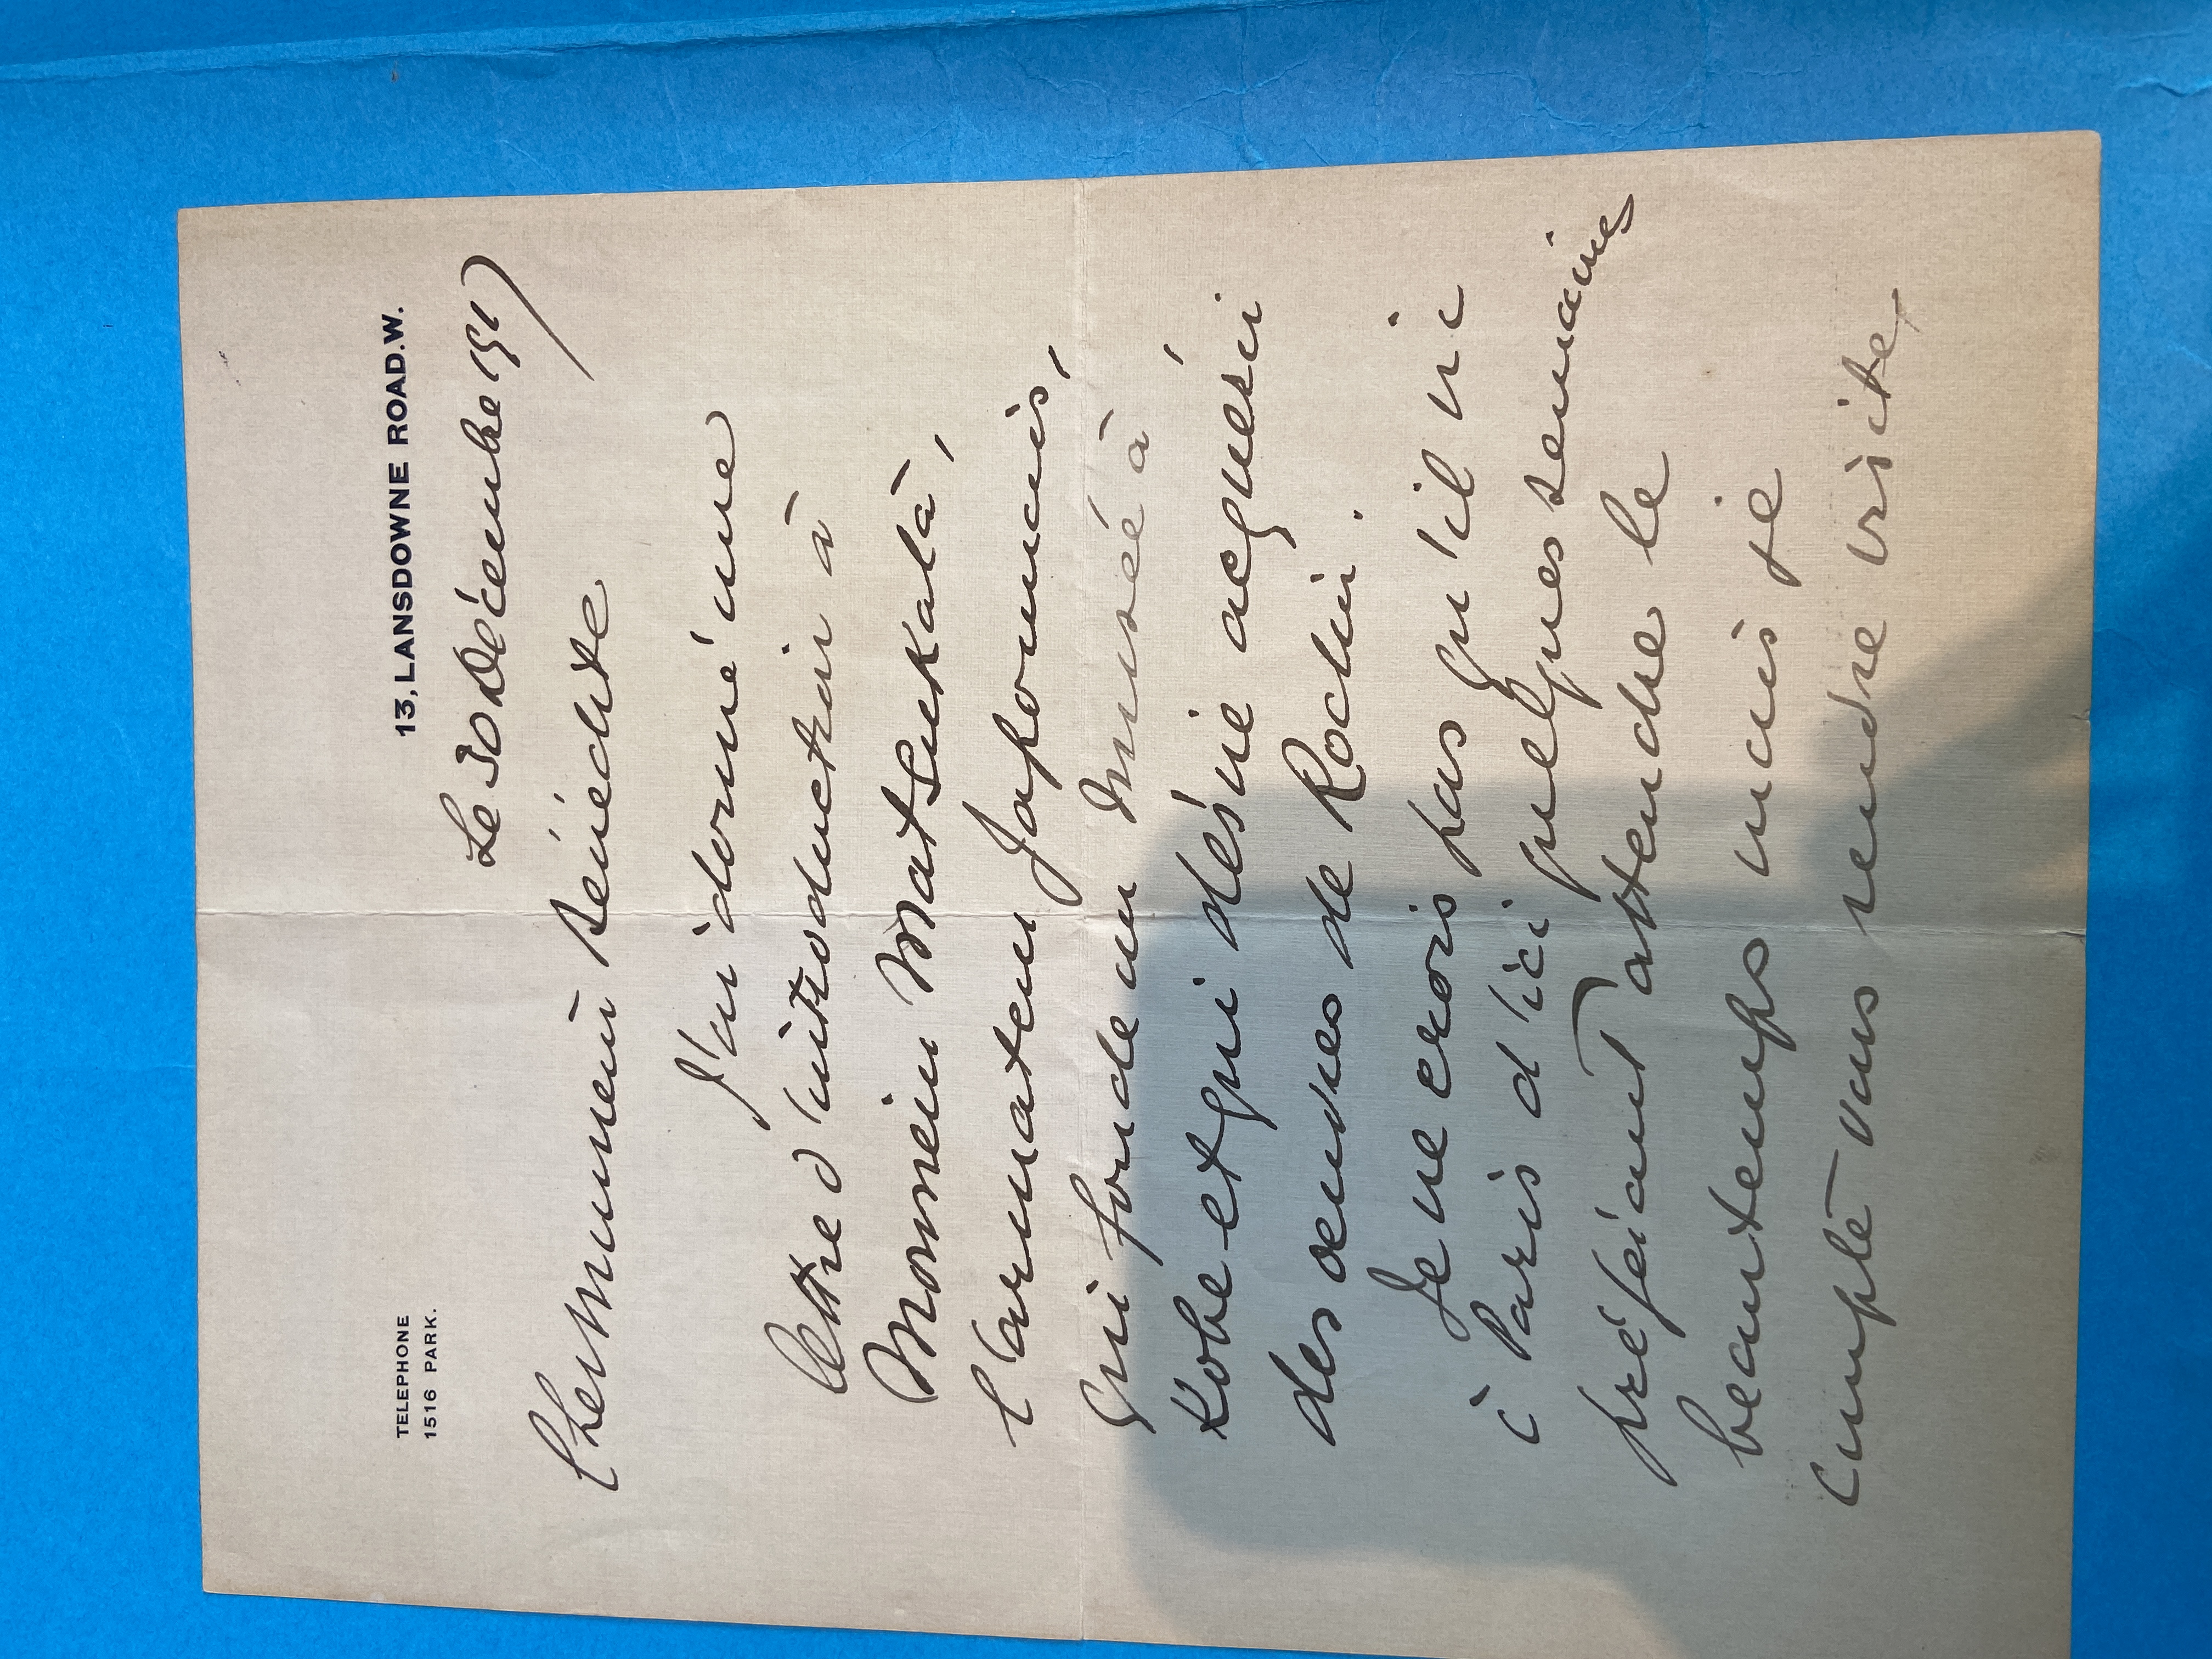 TELEPHONE
1516 PARK.
13, LANSDOWNE ROAD. W.
Le 30 Décembre 1917
Cher Monsieur Bénédite
J'ai donné une
lettre d'introduction à
Monsieur Matsukata,
l'armateur Japonais,
qui fonde un Musée à
Kobe et qui désire acquérir
des oeuvres de Rodin.
Je ne crois pas qu'il ira
à Paris d'ici quelques semaines
préférant attendre le
beau temps mais je
compte vous rendre visite,